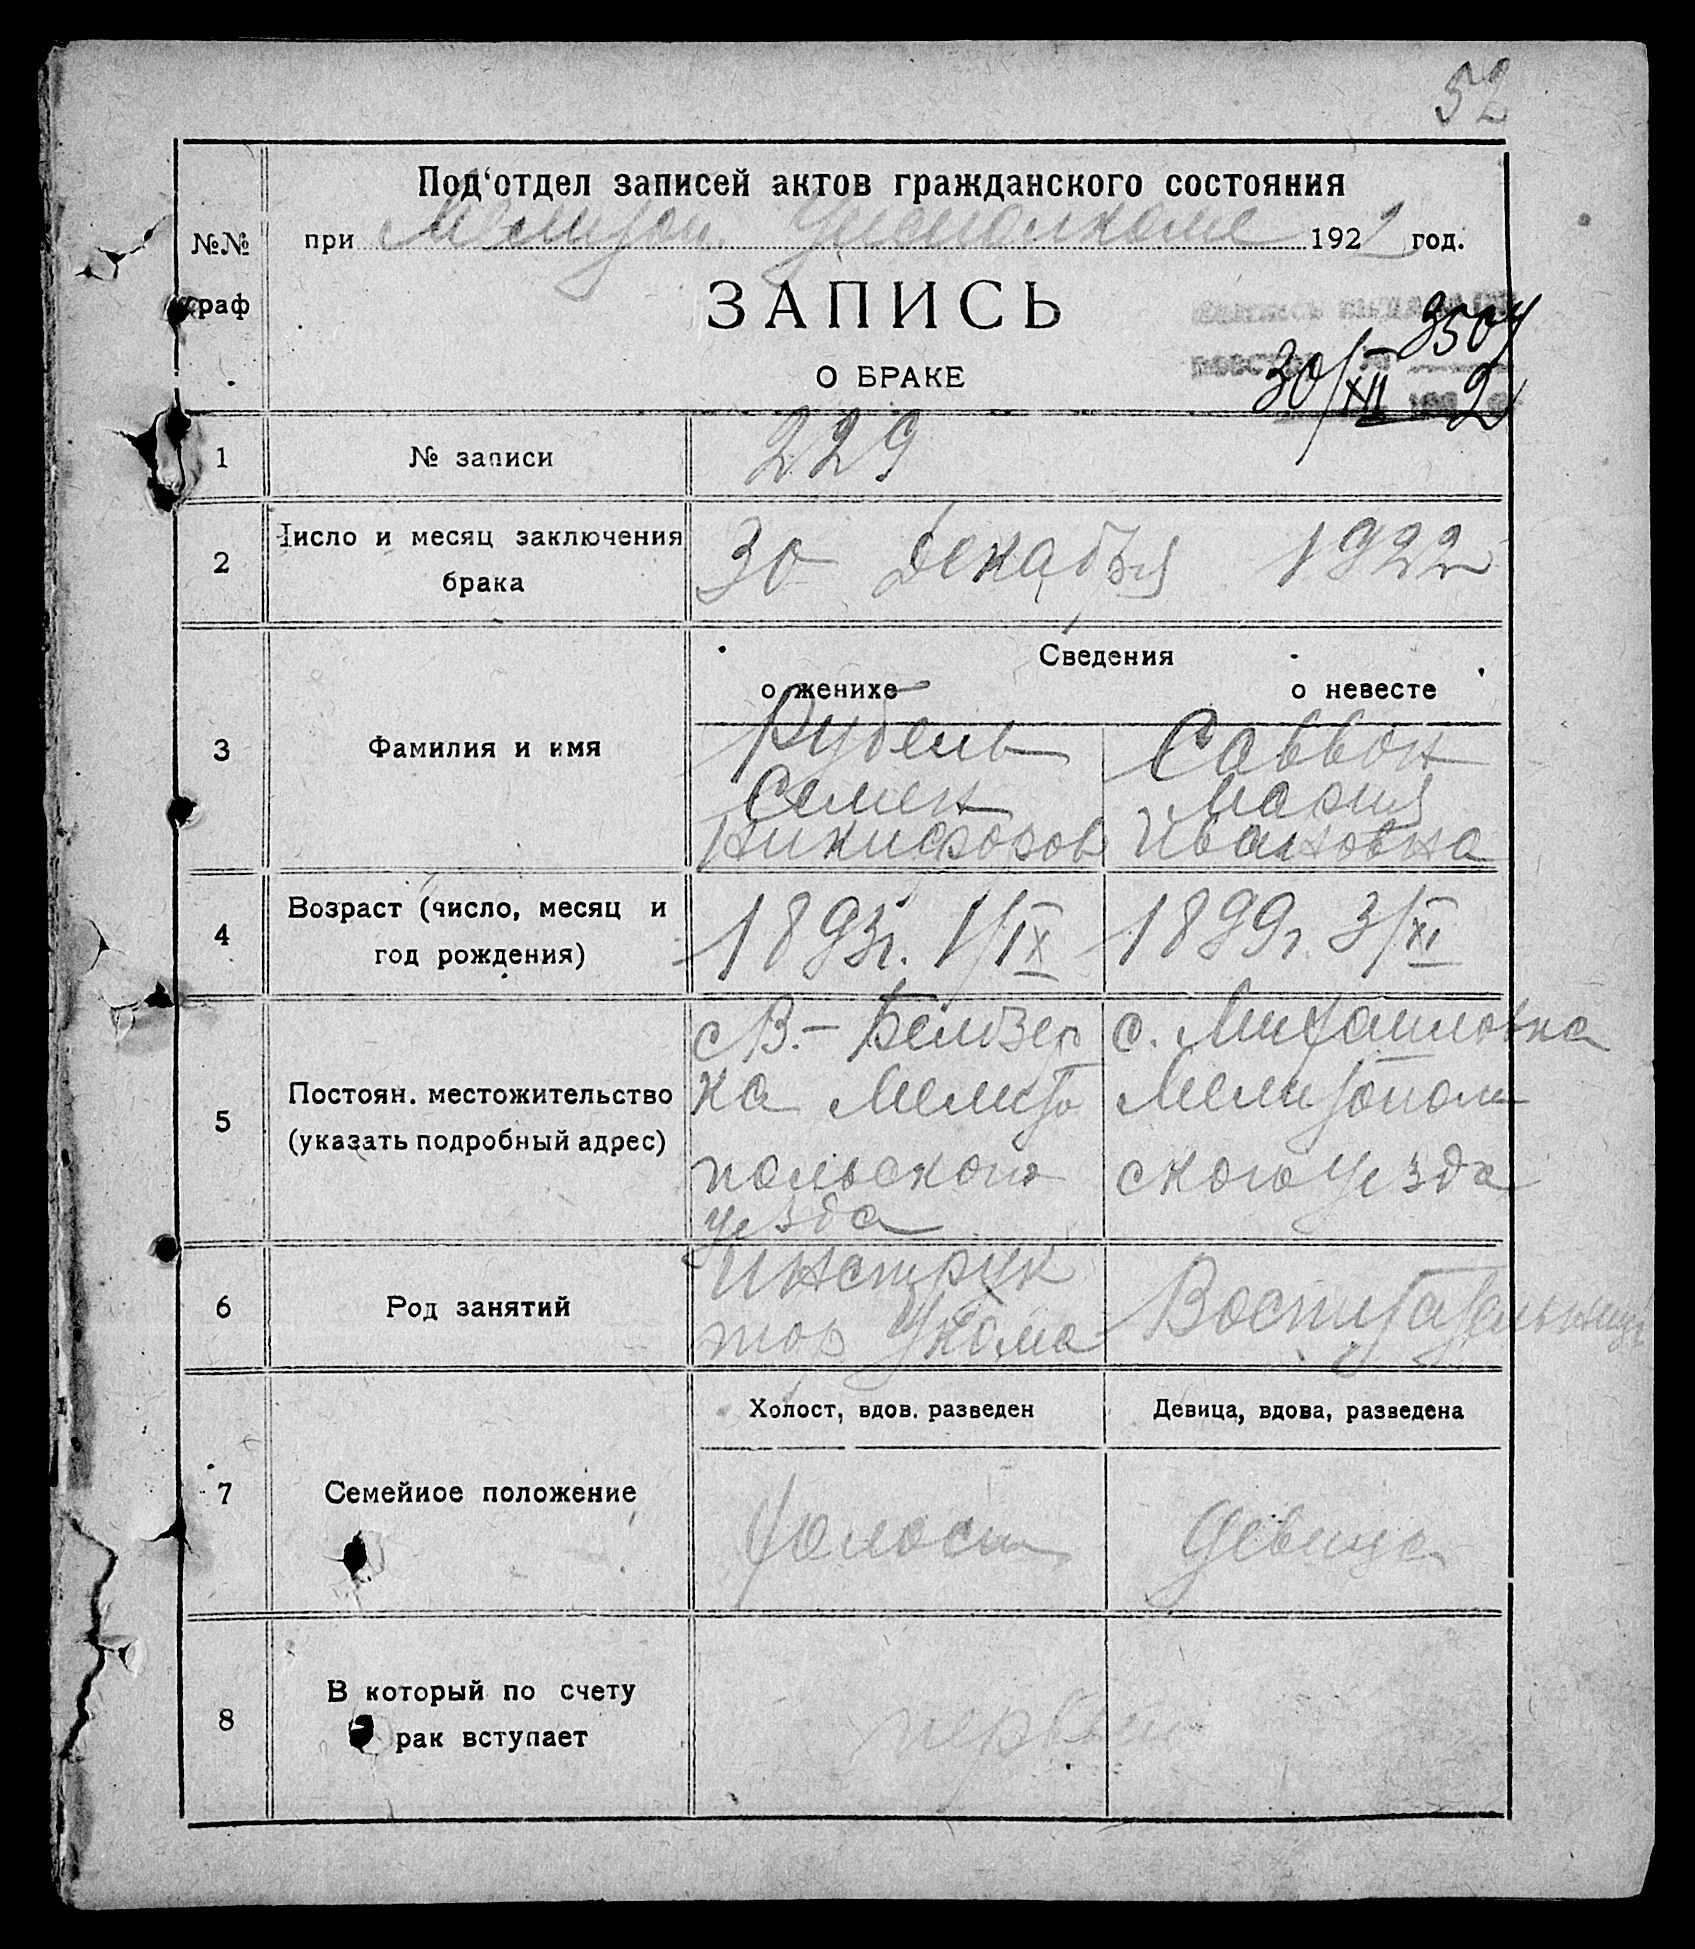 52
Под‘отдел записей актов гражданского состояния
№№ при Мелитоп. Уисполкоме 1922 год.
раф ЗАПИСЬ
3504
О БРАКЕ 30/XII 2
1 № записи 229
2 Число и месяц заключения
брака 30 Декабря 1922
Сведения
о женихе о невесте
3 Фамилия и имя Рубель Саввон
Семен Мария
Никифоров Ивановна
4 Возраст (число, месяц и
год рождения) 1893г. 1/IX 1899г. 3/XI
5 Постоян. местожительство
(указать подробный адрес)
с В.- Белозер с. Михайловка
ка Мелито Мелитополь
польского ского уезда
уезда
6 Род занятий Инструк
тор Укома Воспитательница
Холост, вдов. разведен Девица, вдова, разведена
7 Семейное положение Холост Девица
8 В который по счету
рак вступает первый